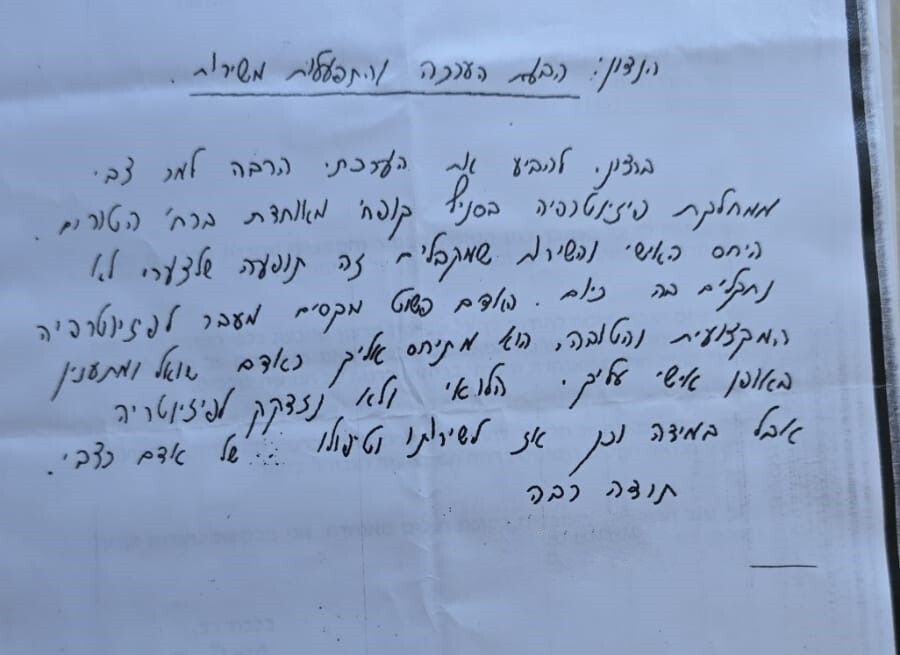 הנדון: הבעת הערכה והתפעלות משירות.
ברצוני להביע את הערכתי הרבה למר צבי
ממחלקת פיזיוטרפיה בסניף קופח' מאוחדת ברח' הטורים.
היחס האישי והשירות שמקבלים זה תופעה שלצערי לא
נתקלים בה כיום. האדם פשוט מקסים מעבר לפיזיוטרפיה
המקצועית והטובה, הוא מתיחס אליך כאדם שואל ומתענין
באופן אישי עליך. הלואי ולא נזדקק לפיזיוטריה
אבל במידה וכן אז לשירותו וטיפולו של אדם כצבי.
תודה רבה